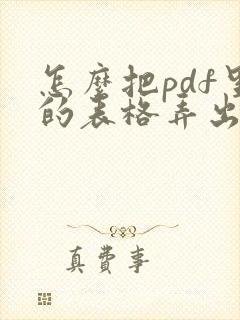 怎麼把pdf里
的表格弄出
真費事